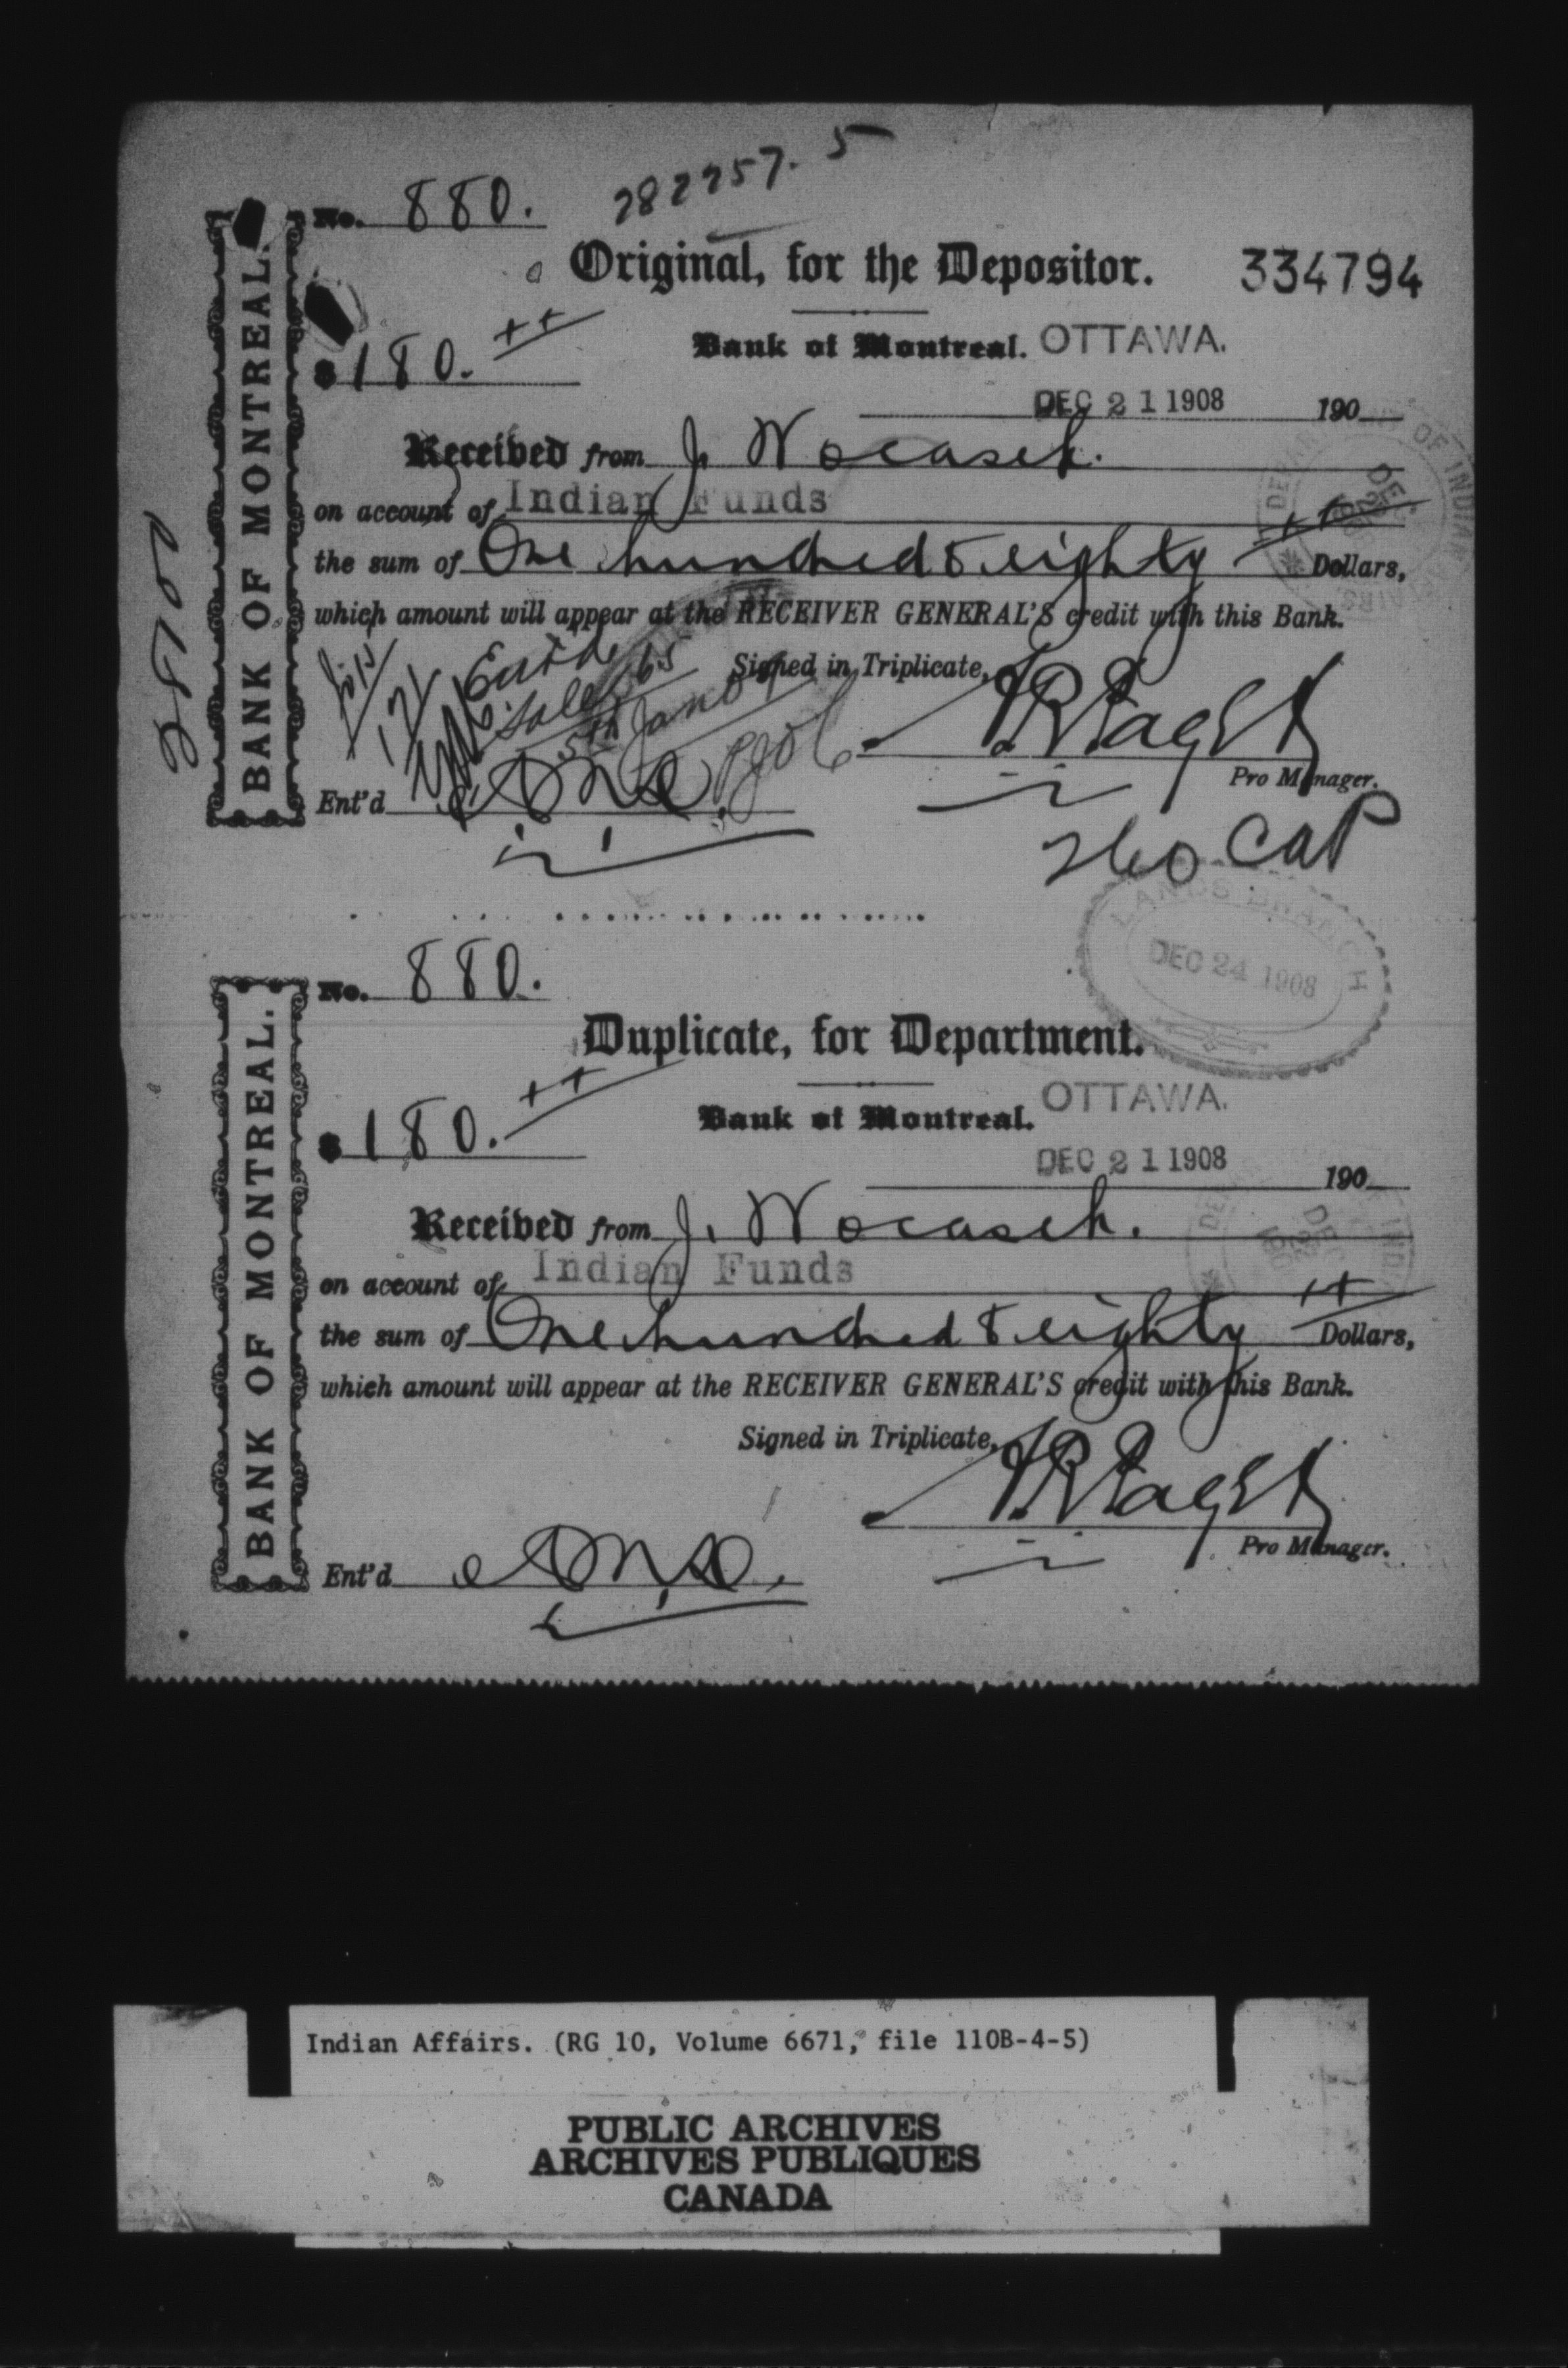 282257. 5
No. 880.
Original, for the Depositor. 334794
$180. xx
Bank of Montreal. OTTAWA.
DEC 21 1908 190
Received from J. Wocasek.
on account of Indian Funds
the sum of One hundred & eighty xx Dollars,
which amount will appear at the RECEIVER GENERAL'S credit with this Bank.
Signed in Triplicate,
Ent'd
Sale 65
5th Jan 09
Pro Manager.
BANK OF MONTREAL.
260 CAP
LANDS BRANCH
DEC 24 1908
No. 880.
Duplicate, for Department.
$180. xx
Bank of Montreal. OTTAWA.
DEC 21 1908 190
Received from J. Wocasek.
on account of Indian Funds
the sum of One hundred & eighty xx Dollars,
which amount will appear at the RECEIVER GENERAL'S credit with this Bank.
Signed in Triplicate,
Pro Manager.
Ent'd
BANK OF MONTREAL.
Indian Affairs. (RG 10, Volume 6671, file 110B-4-5)
PUBLIC ARCHIVES
ARCHIVES PUBLIQUES
CANADA